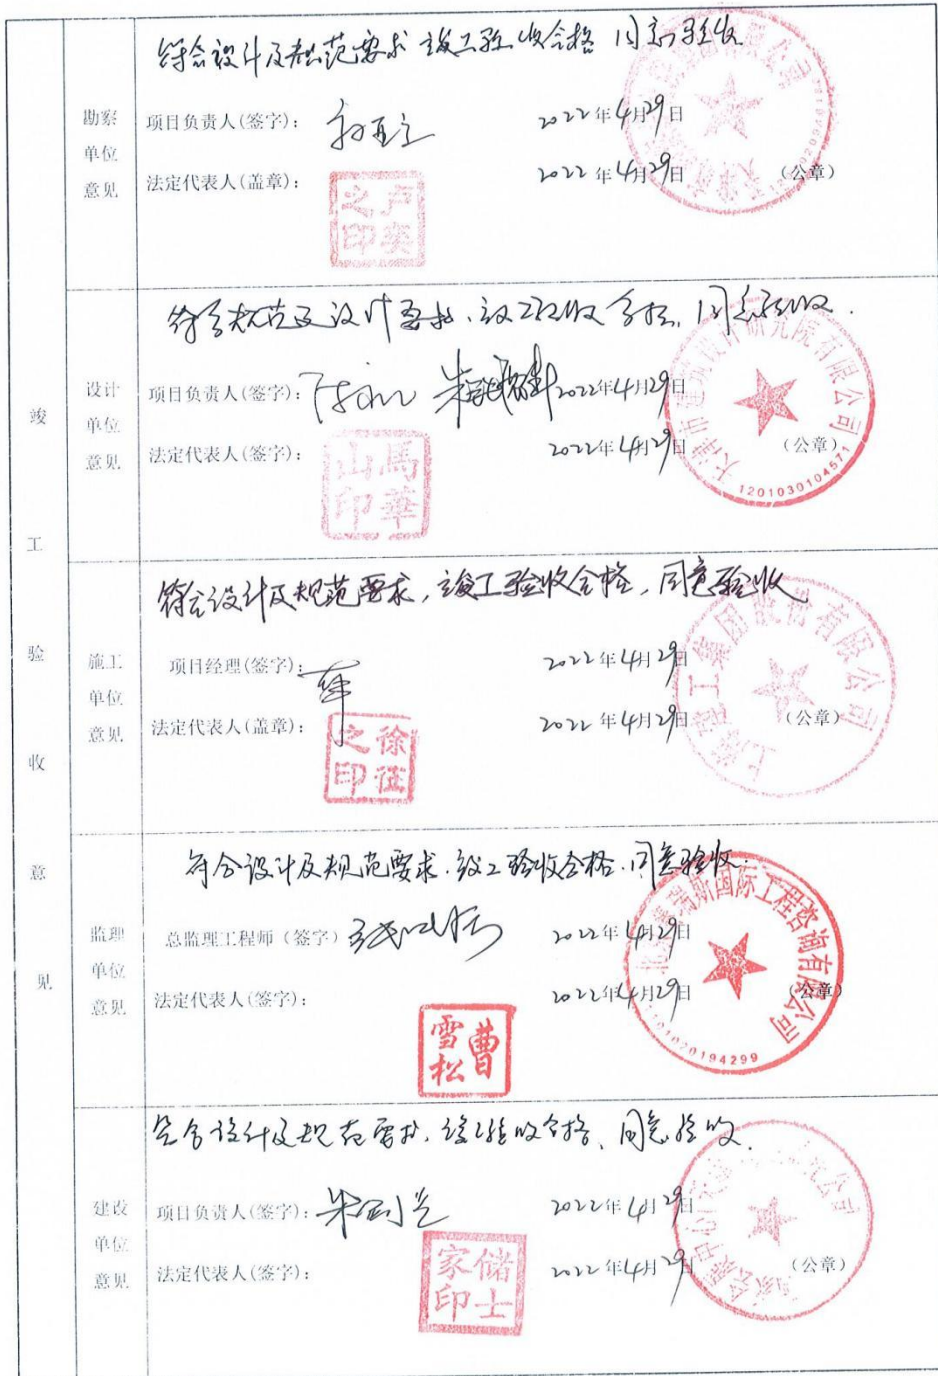 竣工验收意见
勘察单位意见
符合设计及规范要求 竣工验收合格 同意验收
项目负责人(签字):
2022年4月29日
法定代表人(盖章):
2022年4月29日
(公章)
卢奕之印
设计单位意见
符合规范及设计要求,竣工验收合格,同意验收.
项目负责人(签字):
2022年4月29日
法定代表人(签字):
2022年4月29日
(公章)
馬華山印
天津市建筑设计研究院有限公司
1201030104571
施工单位意见
符合设计及规范要求,竣工验收合格,同意验收
项目经理(签字):
2022年4月29日
法定代表人(盖章):
2022年4月29日
(公章)
徐征之印
上海建工集团股份有限公司
监理单位意见
符合设计及规范要求.竣工验收合格.同意验收.
总监理工程师(签字)
2022年4月29日
法定代表人(签字):
2022年4月29日
(公章)
曹雪松
瑞斯国际工程咨询有限公司
1101020194299
建设单位意见
符合设计及规范要求,竣工验收合格、同意验收.
项目负责人(签字):
2022年4月29日
法定代表人(签字):
2022年4月29日
(公章)
储士家印